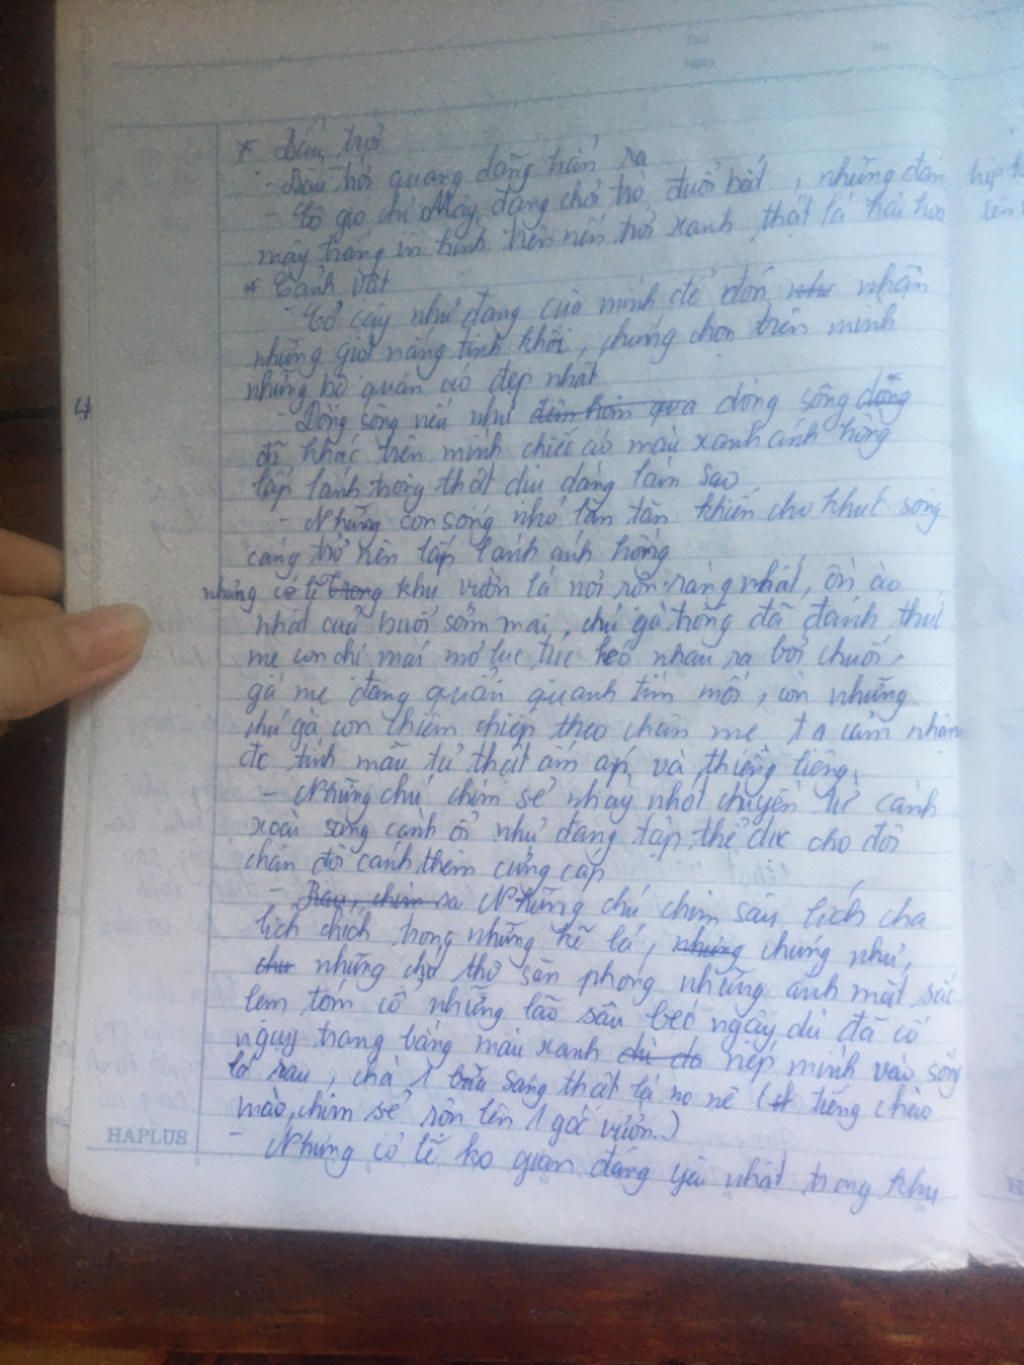 * Bầu trời
- Bầu trời quang đãng hẳn ra
- Cô gió chị Mây đang chơi trò đuổi bắt, những đám
mây trắng in hình trên nền trời xanh thật là hài hòa
* Cảnh vật
- Cỏ cây như đang cúi mình để đón như nhận
những giọt nắng tinh khôi, chúng chọn trên mình
những bộ quần áo đẹp nhất
- Dòng sông nếu như đêm hôm qua dòng sông
đã khác trên mình chiếc áo màu xanh ánh hồng
lấp lánh trông thật dịu dàng làm sao
- Những con sóng nhỏ lăn tăn khiến cho khúc sông
càng trở nên lấp lánh ánh hồng
nhưng có lẽ trong khu vườn là nơi rộn ràng nhất, ồn ào
nhất của buổi sớm mai, chú gà trống đã đánh thức
mẹ con chị mái mơ tục tục kéo nhau ra bởi chuối,
gà mẹ đang quẩn quanh tìm mồi, còn những
chú gà con chiêm chiếp theo chân mẹ ta cảm nhận
đc tình mẫu tử thật ấm áp và thiêng liêng.
- Những chú chim sẻ nhảy nhót chuyền từ cành
xoài sang cành ổi như đang tập thể dục cho đôi
chân đôi cánh thêm cứng cáp
- Rau, chim sa Những chú chim sâu lích cha
lích chích trong những kẽ lá, nhưng chúng như,
chu những chú thợ săn phóng những ánh mắt sắc
lem tóm cổ những lão sâu béo ngậy dù đã có
ngụy trang bằng màu xanh dù đa nép mình vào
lá rau, chà 1 bữa sáng thật là no nê (st tiếng chào
mào, chim sẻ rộn lên 1 góc vườn..)
- Nhưng có lẽ ko gian đáng yêu nhất trong khu
HAPLUS